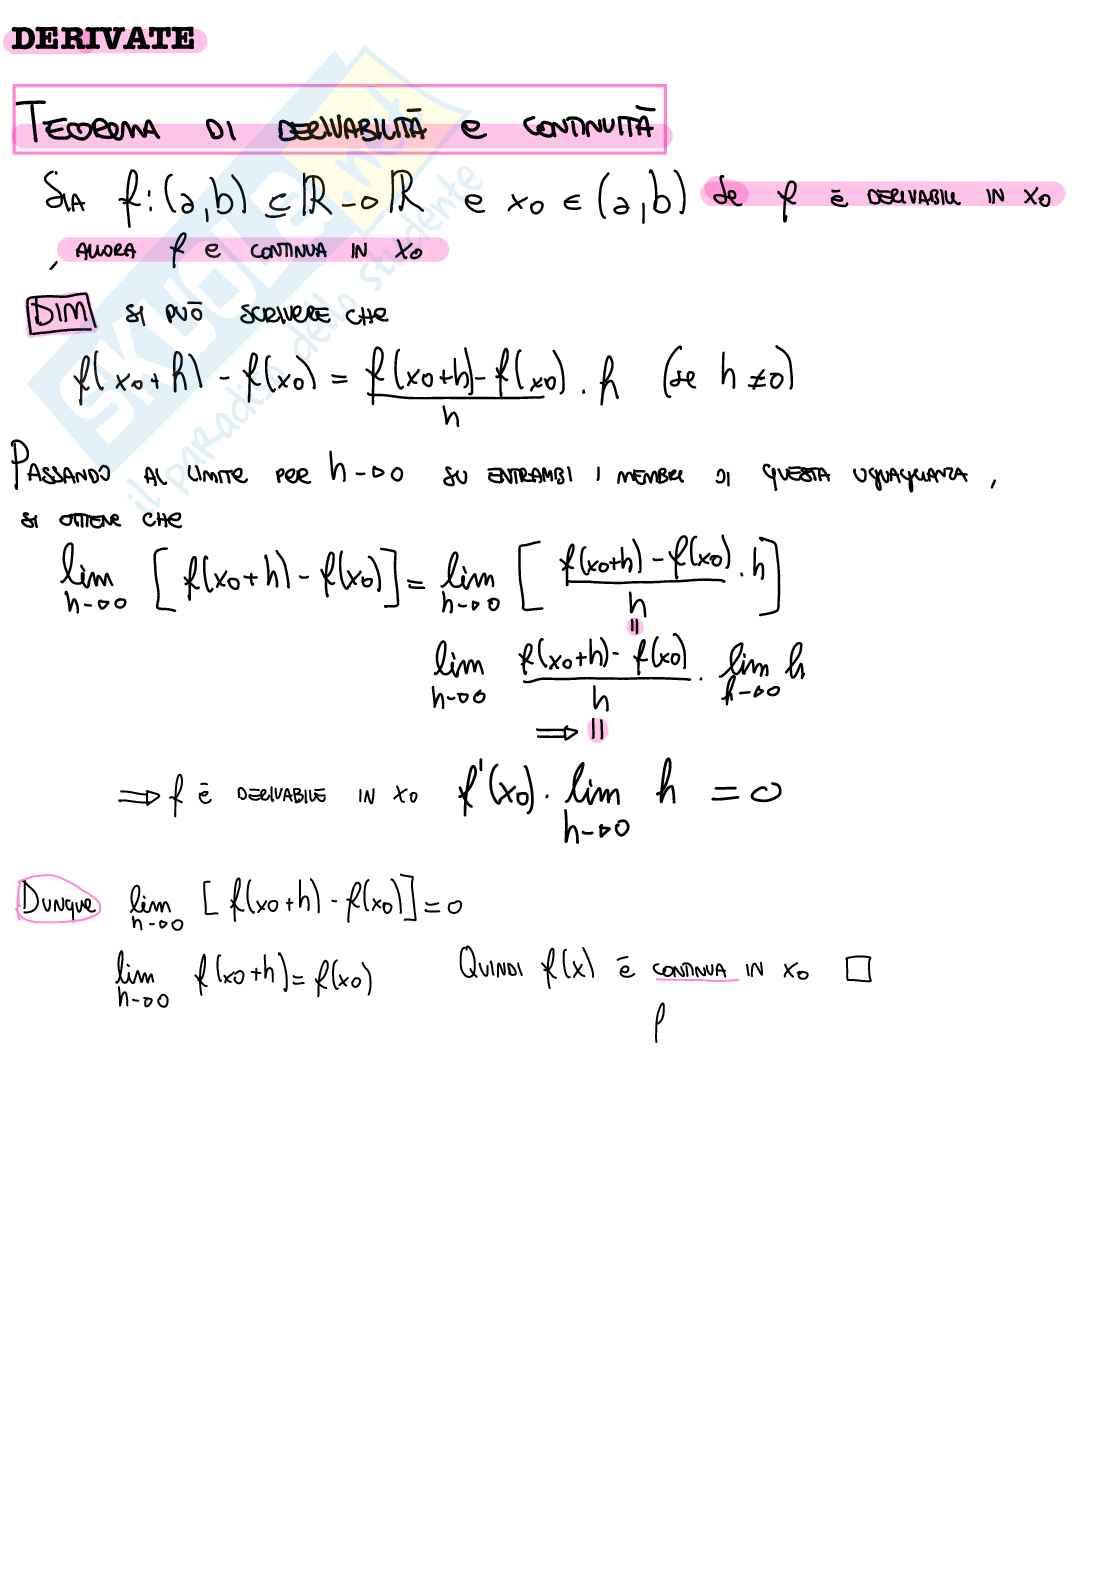 DERIVATE
TEOREMA DI DERIVABILITÀ E CONTINUITÀ
SIA f: (a,b) ⊆ ℝ → ℝ e x0 ∈ (a,b) se f è DERIVABILE IN x0
, ALLORA f E CONTINUA IN x0
DIM SI PUÒ SCRIVERE CHE
f(x0+h) - f(x0) = f(x0+h) - f(x0) / h · h (se h ≠ 0)
PASSANDO AL LIMITE PER h → 0 SU ENTRAMBI I MEMBRI DI QUESTA UGUAGLIANZA,
SI OTTIENE CHE
lim h→0 [f(x0+h) - f(x0)] = lim h→0 [f(x0+h) - f(x0) / h · h]
=
lim h→0 f(x0+h) - f(x0) / h · lim h→0 h
⇒ =
⇒ f è DERIVABILE IN x0 f'(x0) · lim h→0 h = 0
DUNQUE lim h→0 [f(x0+h) - f(x0)] = 0
lim h→0 f(x0+h) = f(x0) QUINDI f(x) è CONTINUA IN x0 □
SKUOLA.net
il paradiso dello studente